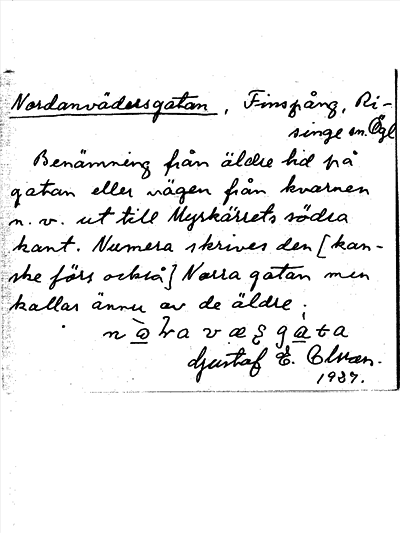 Nordanvädersgatan, Finspång, Ri-
singe sn. Ögl
Benämning från äldre tid på
gatan eller vägen från kvarnen
n. v. ut till Myrkärrets södra
kant. Numera skrives den [kan-
ske förs också] Norra gatan men
kallas ännu av de äldre;
Gustaf E.
1937.